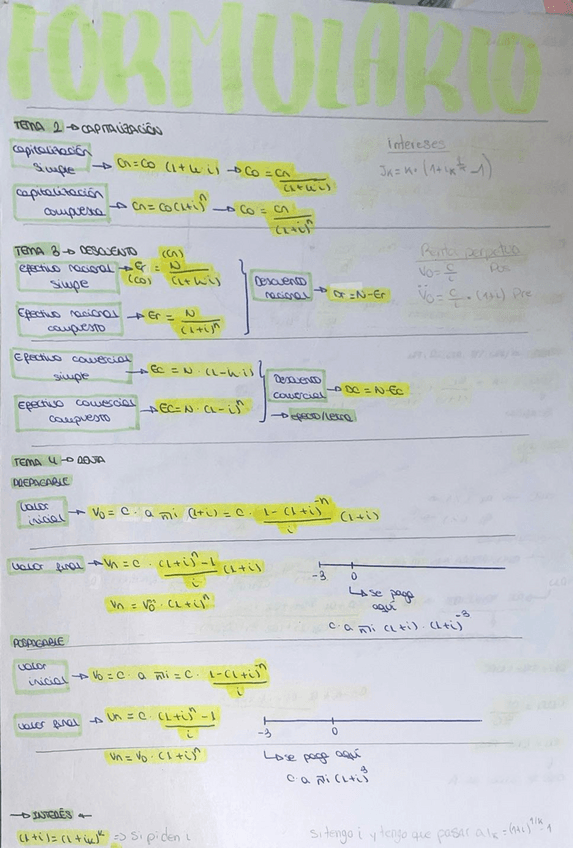 FORMULARIO
TEMA 2 → CAPITALIZACIÓN
capitalización simple → Cn = Co (1 + n i) → Co = Cn / (1 + n i)
intereses
Jk = k · (1 + ik^(1/k) - 1)
capitalización compuesta → Cn = Co (1 + i)^n → Co = Cn / (1 + i)^n
TEMA 3 → DESCUENTO
efectivo racional simple → Er (Co) = N (Cn) / (1 + n i)
Efectivo racional compuesto → Er = N / (1 + i)^n
Descuento racional → Dr = N - Er
Renta perpetua
Vo = C / i Pos
V̈o = C / i · (1 + i) Pre
Efectivo comercial simple → EC = N · (1 - n · i)
Efectivo comercial compuesto → EC = N · (1 - i)^n
Descuento comercial → DC = N - EC
→ efecto/letra
TEMA 4 → RENTA
PREPAGABLE
valor inicial → Vo = C · a n̅ i (1 + i) = C · 1 - (1 + i)^-n / i (1 + i)
valor final → Vn = C · (1 + i)^n - 1 / i (1 + i)
Vn = V̈o · (1 + i)^n
-3 0
↳ se paga
aquí
C · a n̅ i (1 + i) · (1 + i)^-3
POSPAGABLE
valor inicial → Vo = C · a n̅ i = C · 1 - (1 + i)^-n / i
valor final → Vn = C · (1 + i)^n - 1 / i
Vn = Vo · (1 + i)^n
-3 0
↳ se paga aquí
C · a n̅ i (1 + i)^3
→ INTERÉS ←
(1 + i) = (1 + ik)^k => Si piden i
si tengo i y tengo que pasar a ik = (1 + i)^1/k - 1